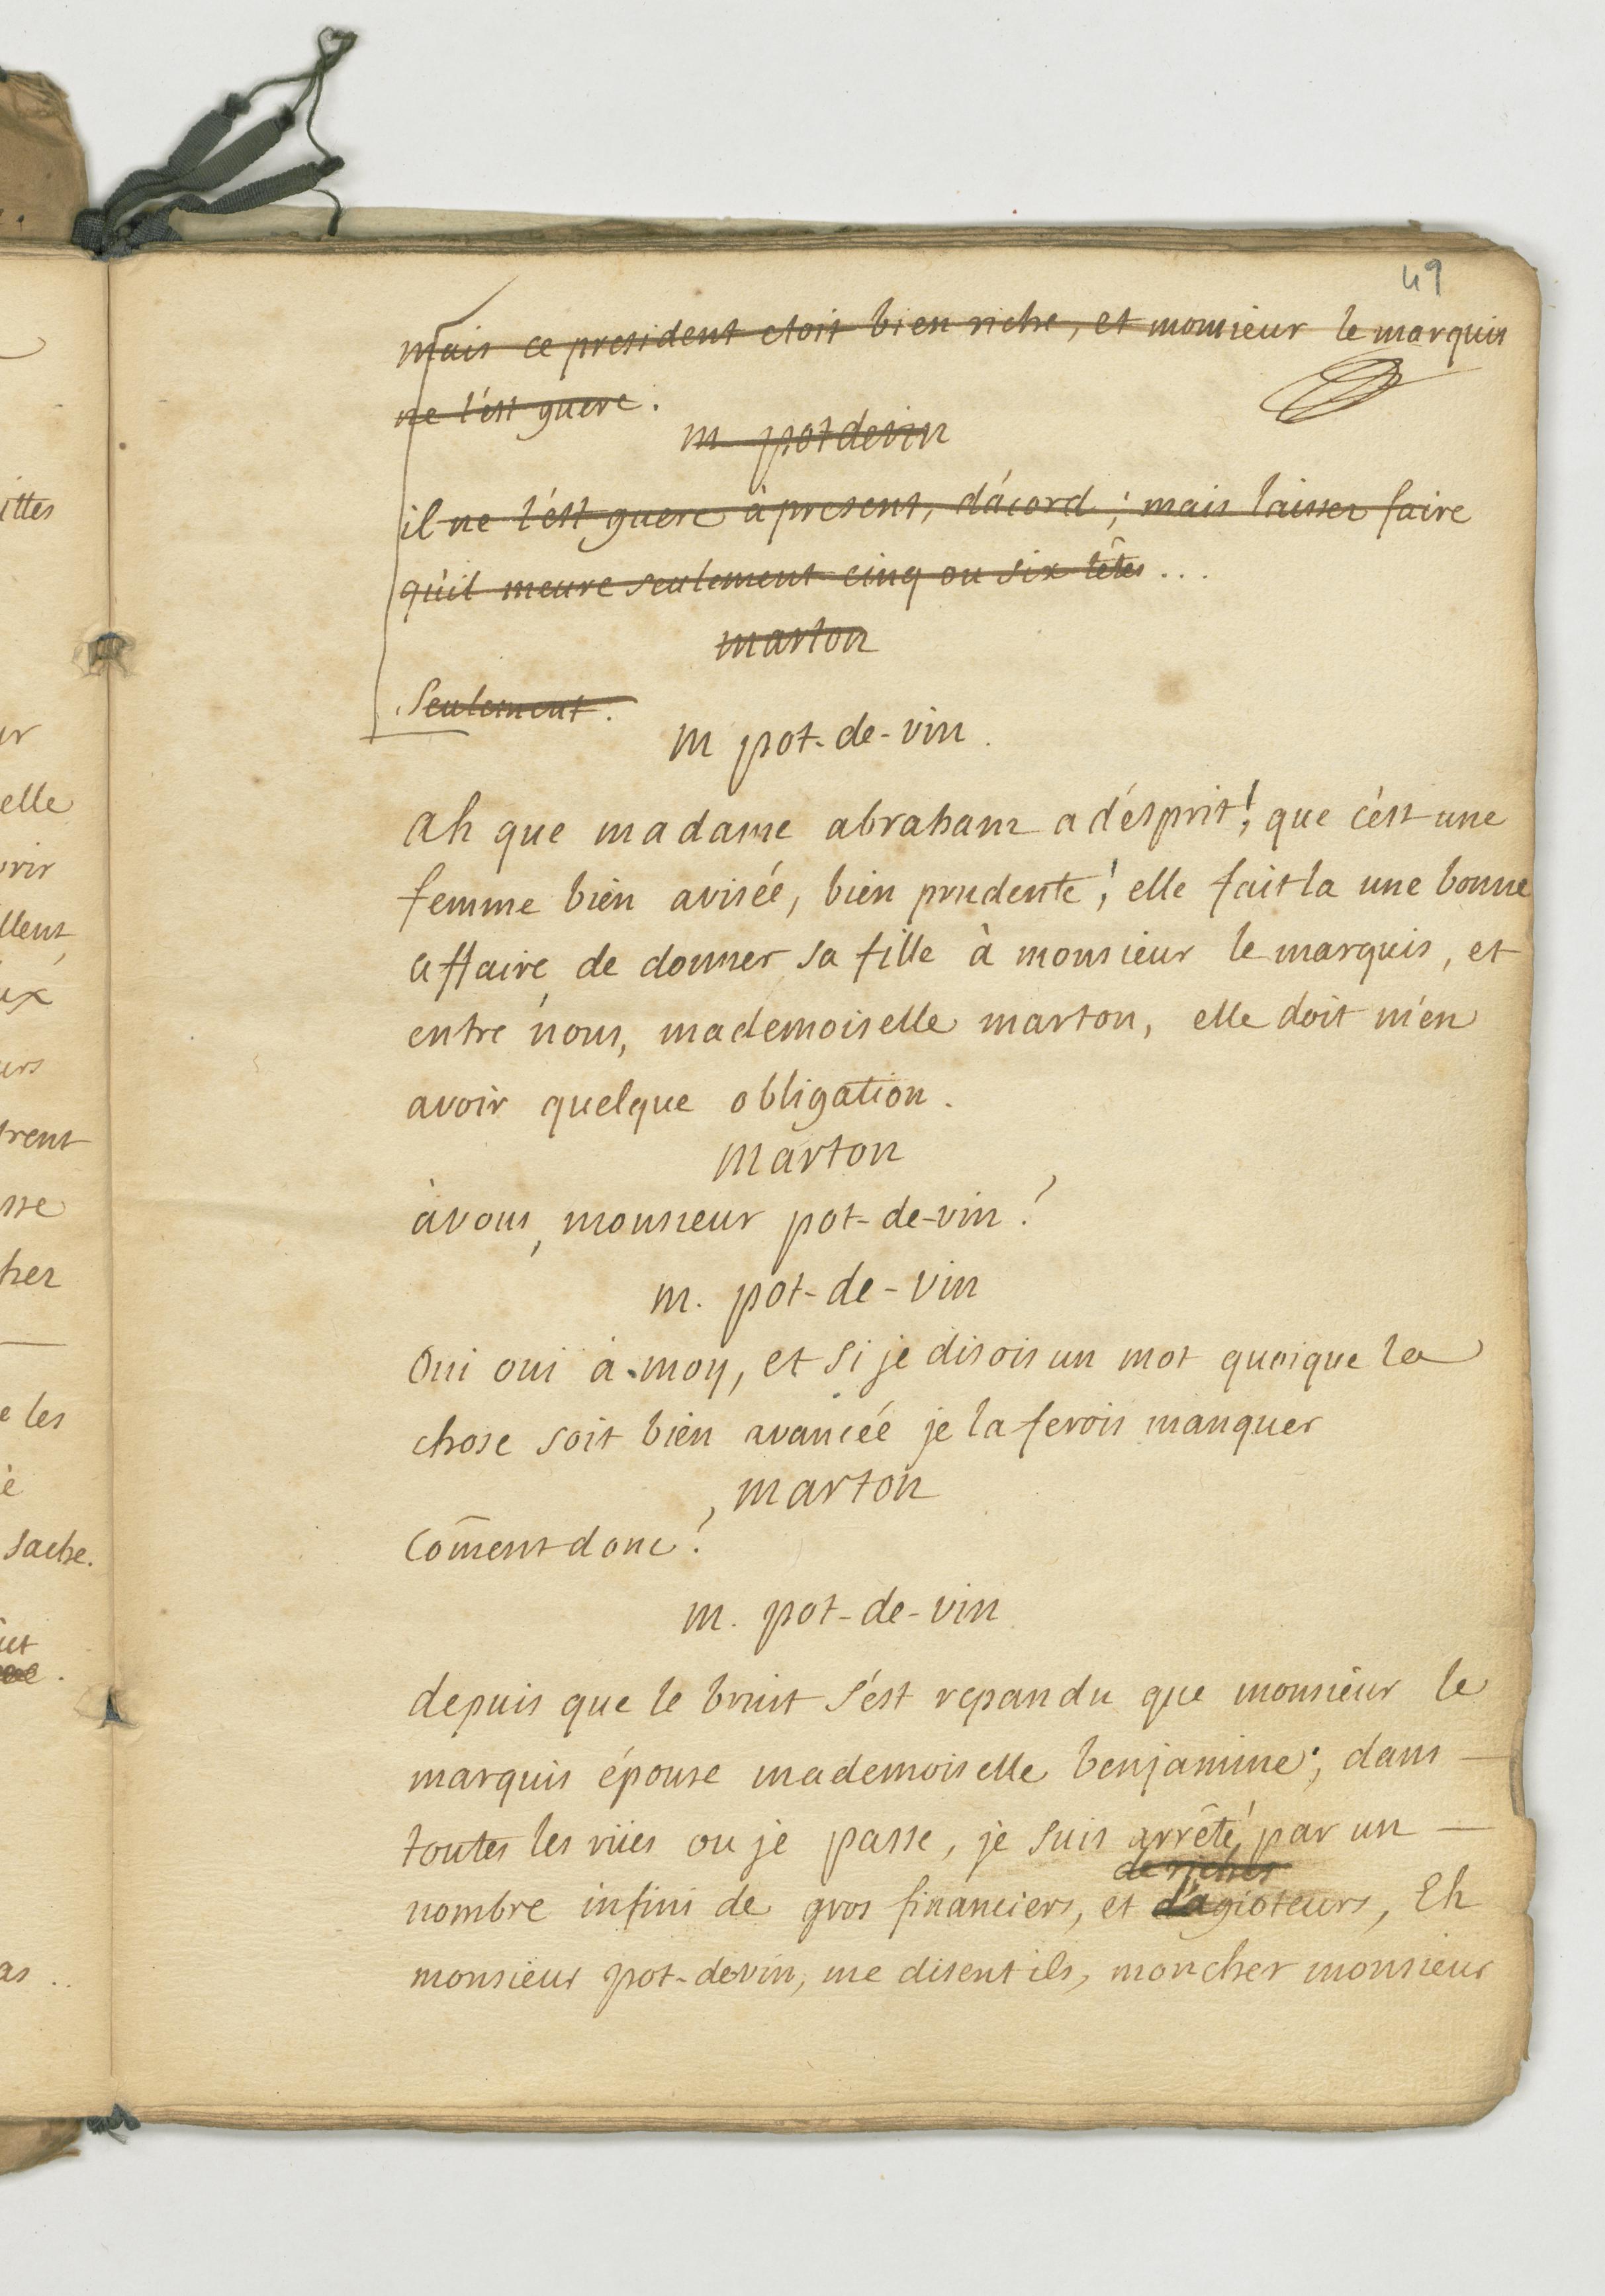 49
mais ce president etoit bien riche, et monsieur le marquis
ne l'est guere.
m potdevin
il ne l'est guere à present, d'acord; mais laisser faire
qu'il meure seulement cinq ou six têtes...
marton
Seulement.
m pot-de-vin.
ah que madame abraham a d'ésprit! que c'est une
femme bien aviséé, bien prudente! elle fait la une bonne
affaire de donner sa fille à monsieur le marquis, et
entre nous, mademoiselle marton, elle doit m'en
avoir quelque obligation.
marton
à vous, monsieur pot-de-vin?
m. pot-de-vin
Oui oui à moy, et si je disois un mot quoique la
chose soit bien avancéé je la ferois manquer
marton
Com̄ent donc?
m. pot-de-vin
depuis que le bruit s'est repandu que monsieur le
marquis épouse mademoiselle benjamine; dans
toutes les rües ou je passe, je suis arrêté par un
de riches
nombre infini de gros financiers, et d'agioteurs, Eh
monsieur pot-devin, me disent ils, mon cher monsieur
ittes
ur
elle
rir
llent
ux
urs
trent
sse
her
e les
sache.
as ..